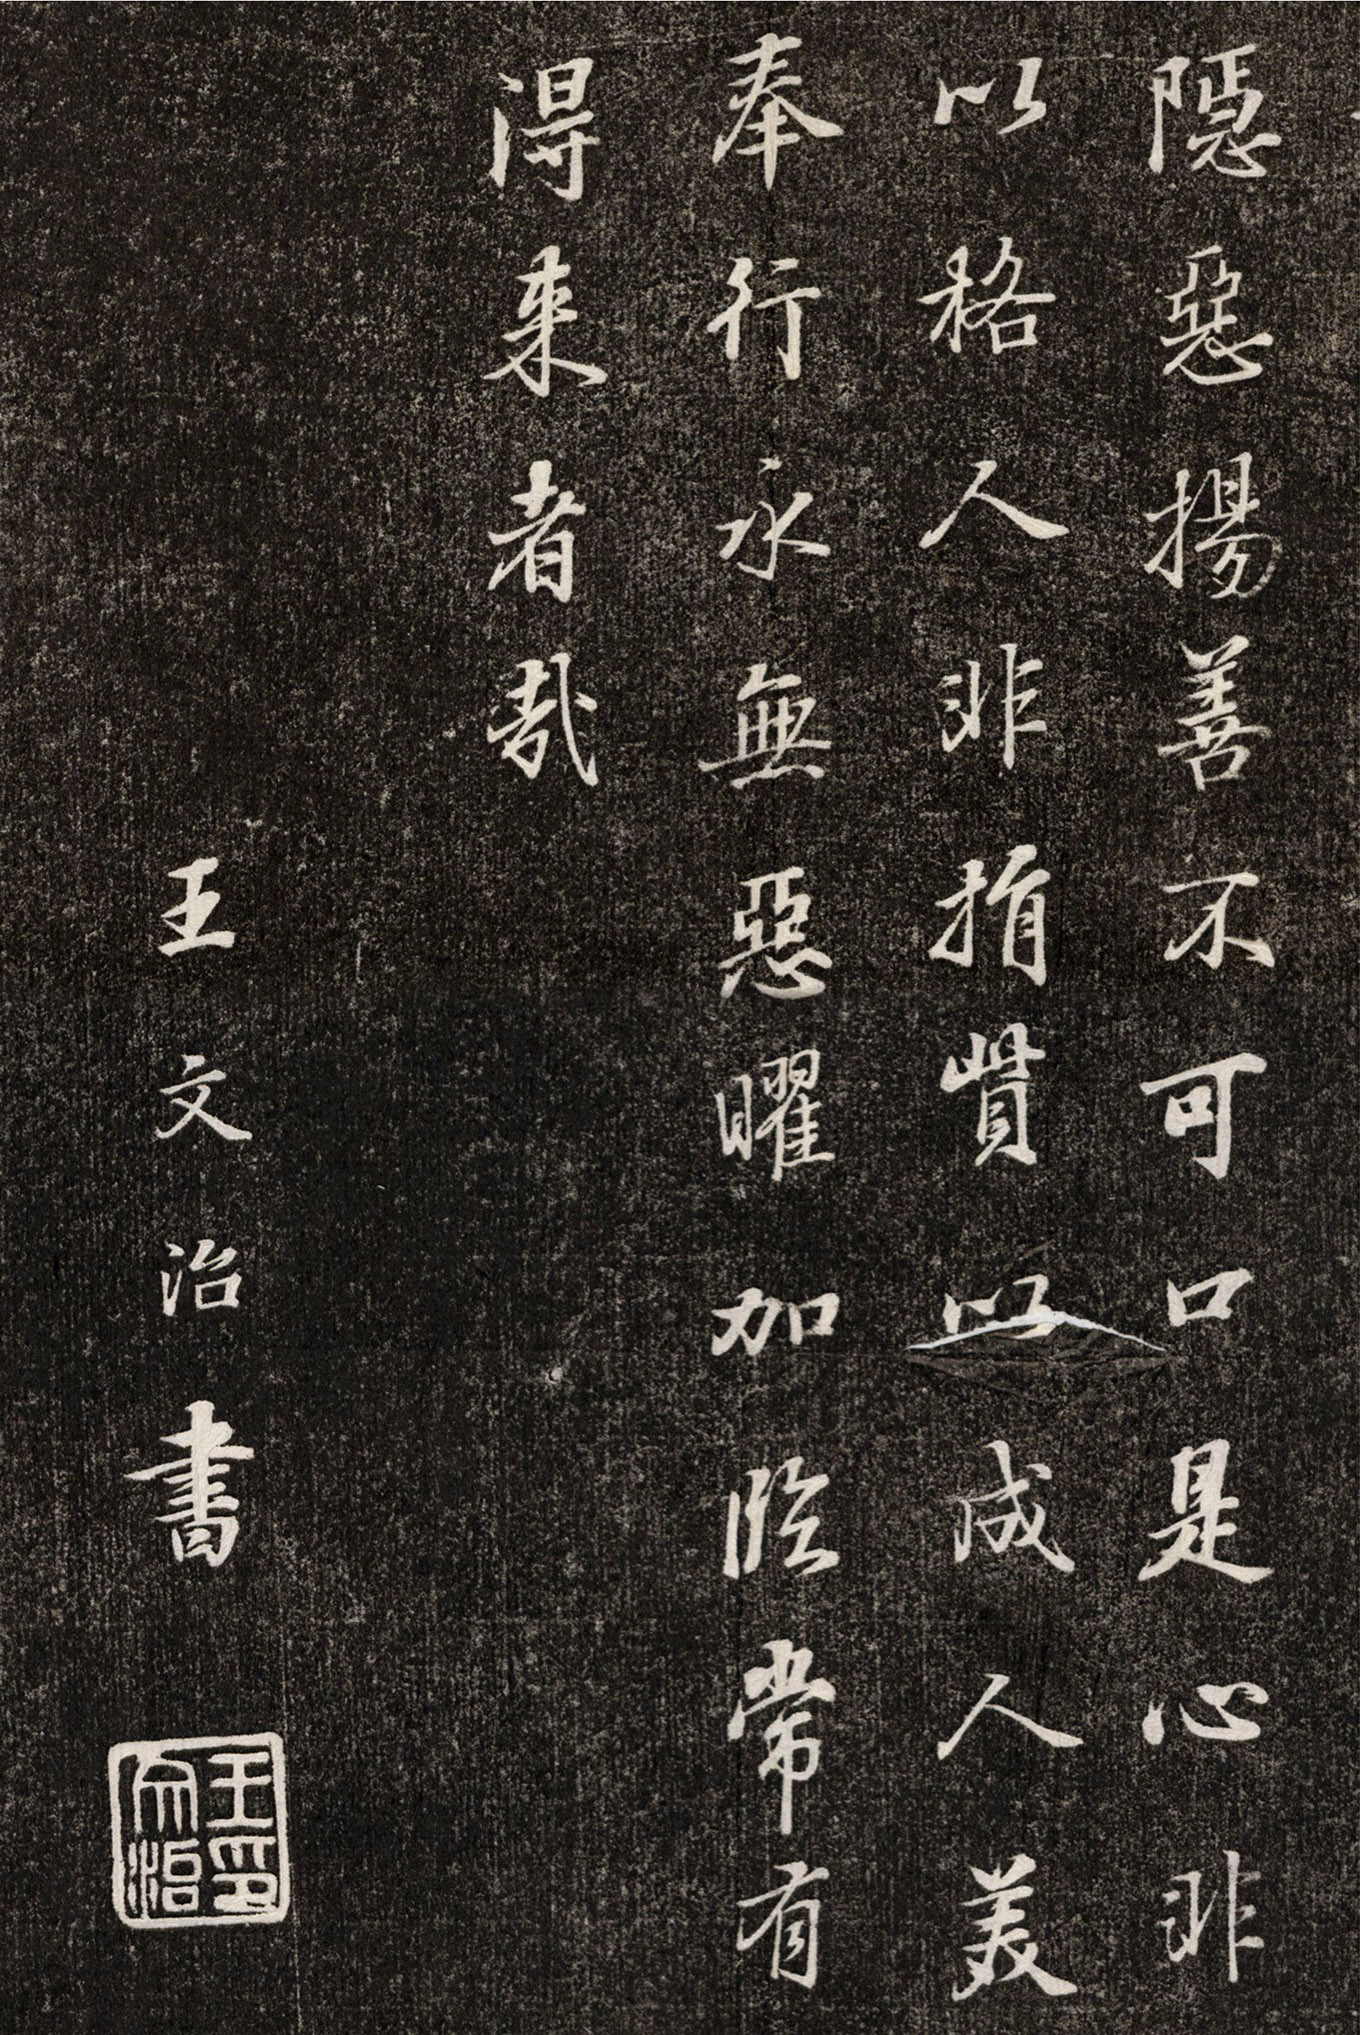 隱惡揚善不可口是心非
以格人非捐貲以成人美
奉行永無惡曜加臨常有
得來者哉
王文治書
王印文治